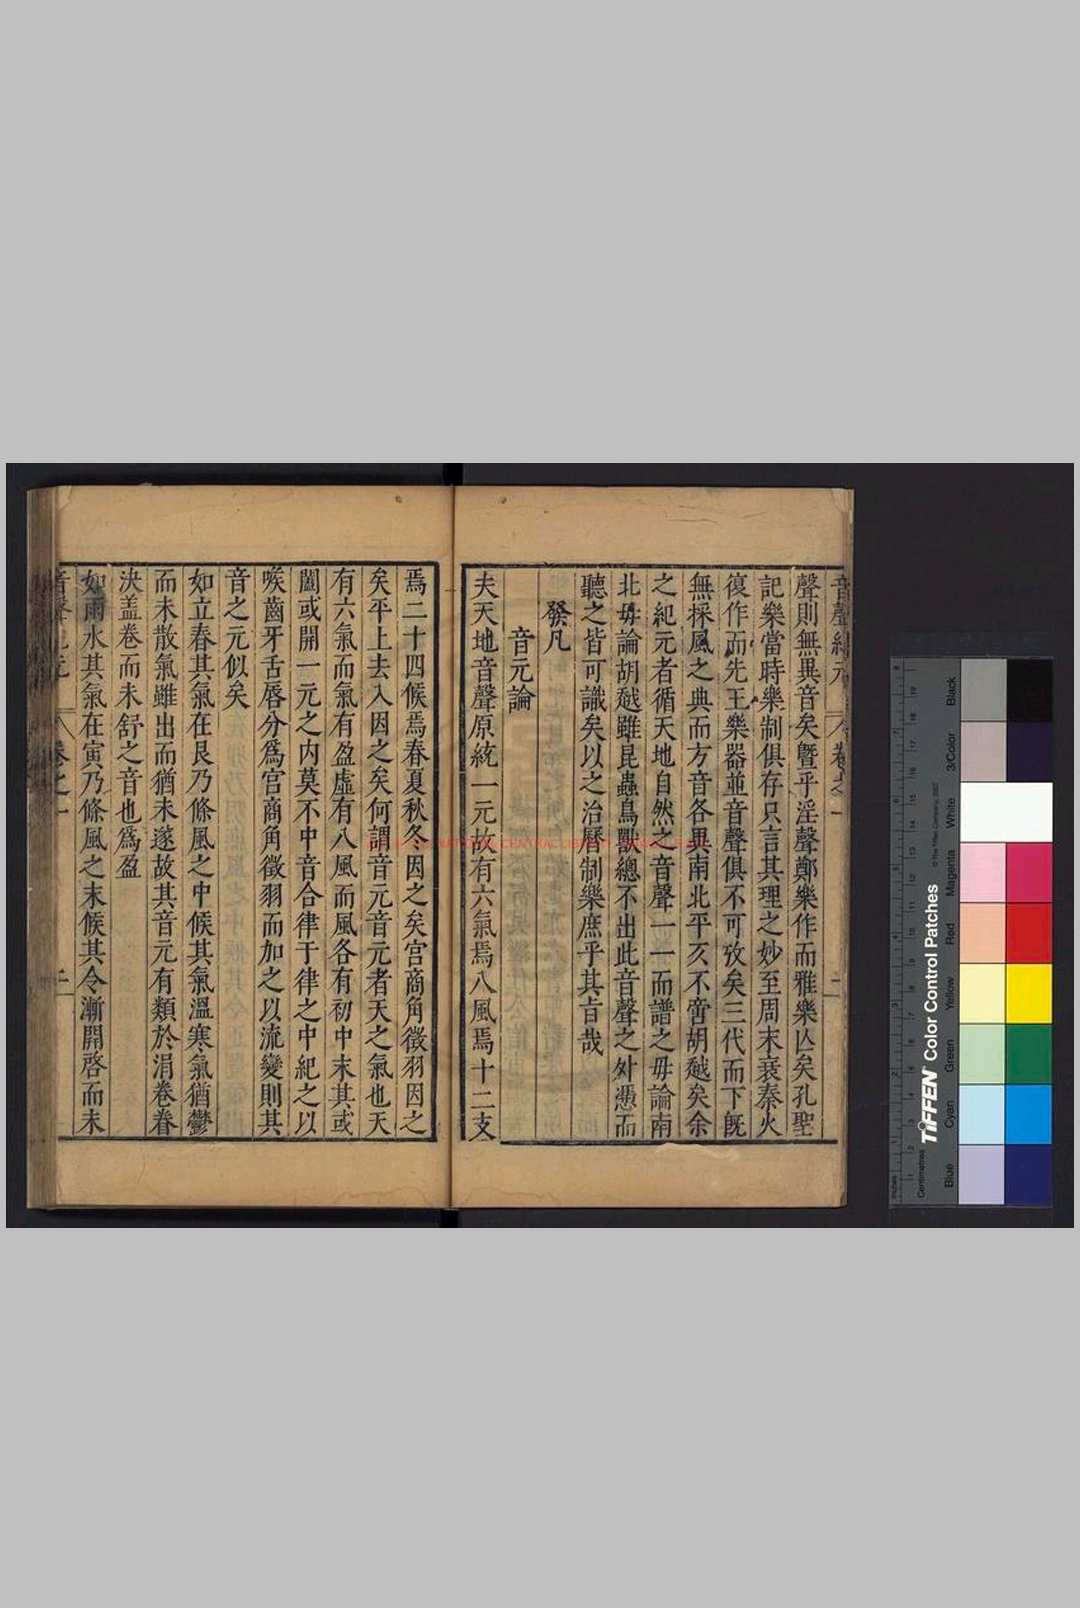 音聲紀元 卷之一 二
聲則無異音矣曁乎淫聲鄭樂作而雅樂亾矣孔聖
記樂當時樂制俱存只言其理之妙至周末衰秦火
復作而先王樂器並音聲俱不可攷矣三代而下旣
無採風之典而方音各異南北平仄不啻胡越矣余
之紀元者循天地自然之音聲一一而譜之毋論南
北毋論胡越雖昆蟲鳥獸總不出此音聲之外慿而
聽之皆可識矣以之治曆制樂庶乎其旨哉
發凡
音元論
夫天地音聲原統一元故有六氣焉八風焉十二支
焉二十四候焉春夏秋冬因之矣宫商角徵羽因之
矣平上去入因之矣何謂音元音元者天之氣也天
有六氣而氣有盈虛有八風而風各有初中末其或
闔或開一元之内莫不中音合律于律之中紀之以
喉齒牙舌唇分爲宫商角徵羽而加之以流變則其
音之元似矣
如立春其氣在艮乃條風之中候其氣溫寒氣猶鬱
而未散氣雖出而猶未遂故其音元有類於涓卷眷
決盖卷而未舒之音也爲盈
如雨水其氣在寅乃條風之末候其令漸開啓而未
音聲紀元 卷之一 二
Blue
Cyan
Green
Yellow
Red
Magenta
White
3/Color
Black
TIFFEN Color Control Patches
© The Tiffen Company, 2007
Centimetres
Inches